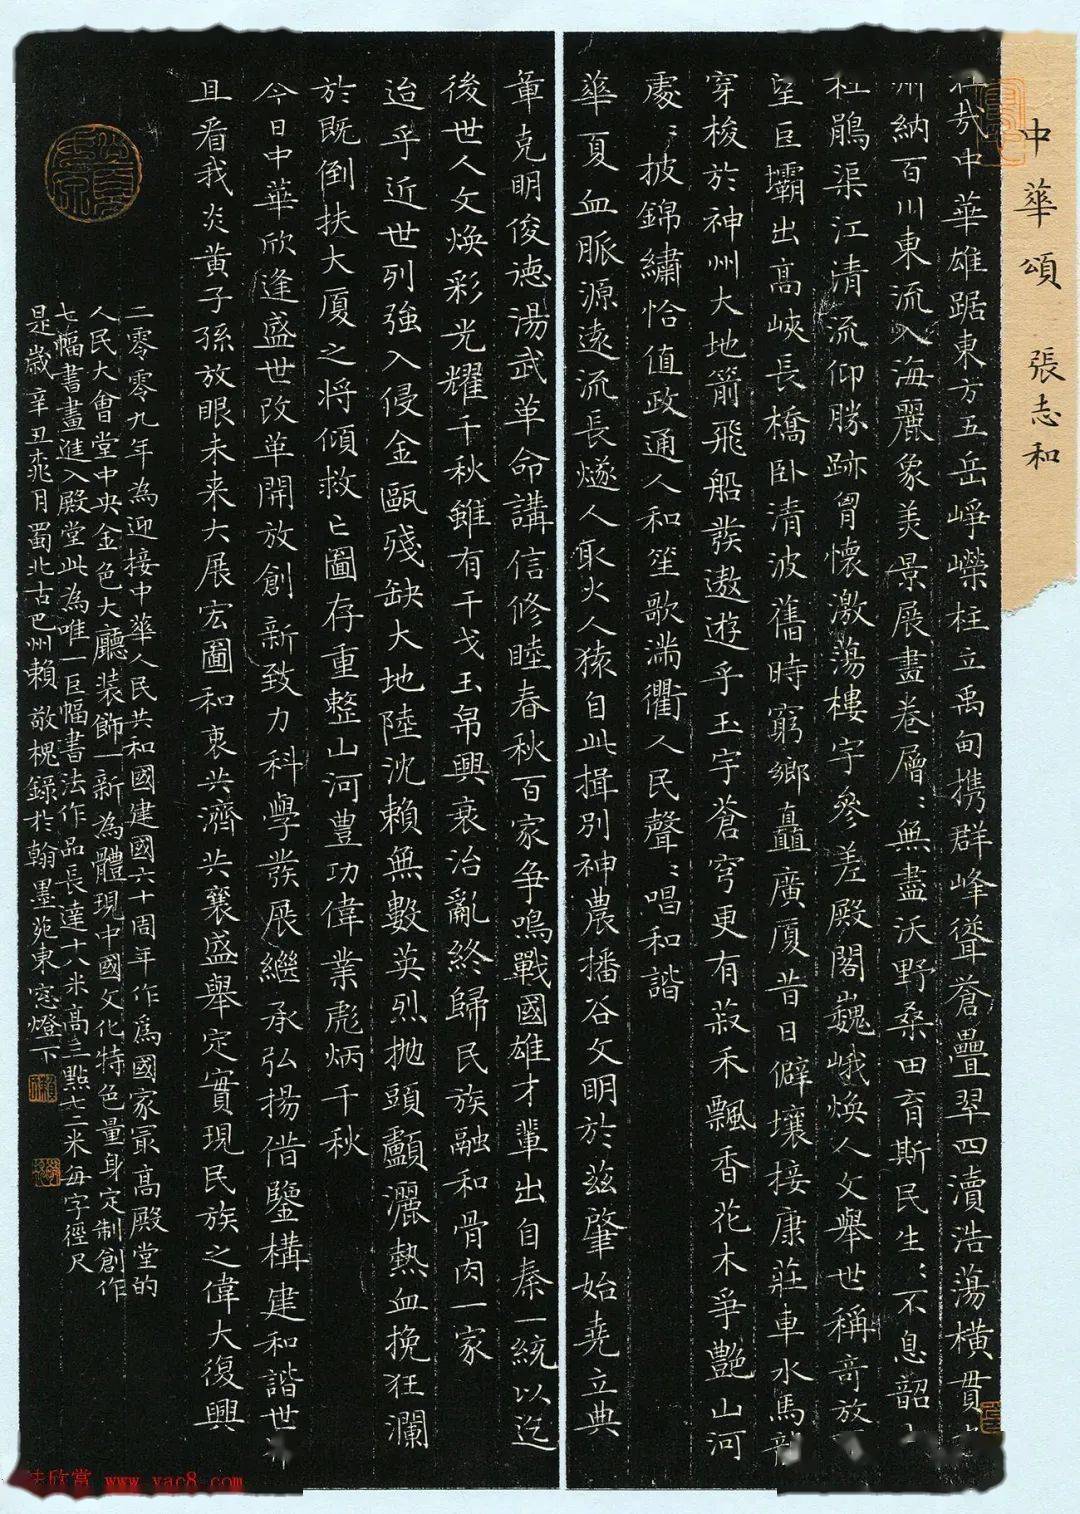 中華頌 張志和
哉中華雄踞東方五岳崢嶸柱立禹甸携群峰聳蒼疊翠四瀆浩蕩橫貫
納百川東流入海麗象美景展畫卷層〻無盡沃野桑田育斯民生〻不息韶
杜鵑渠江清流仰勝跡胃懷激蕩樓宇參差殿閣巍峨煥人文舉世稱奇放
望巨壩出高峽長橋卧清波舊時窮鄉矗廣厦昔日僻壤接康莊車水馬龍
穿梭於神州大地箭飛船發遨遊乎玉宇蒼穹更有菽禾飄香花木爭艷山河
處〻披錦繡恰值政通人和笙歌滿衢人民聲〻唱和諧
華夏血脈源遠流長燧人取火人猿自此揖別神農播谷文明於茲肇始堯立典
章克明俊德湯武革命講信修睦春秋百家爭鳴戰國雄才輩出自秦一統以迄
後世人文煥彩光耀千秋雖有干戈玉帛興衰治亂終歸民族融和骨肉一家
迨乎近世列強入侵金甌殘缺大地陸沈賴無數英烈抛頭顱灑熱血挽狂瀾
於既倒扶大厦之將傾救亡圖存重整山河豐功偉業彪炳千秋
今日中華欣逢盛世改革開放創新致力科學發展繼承弘揚借鑒構建和諧世
且看我炎黃子孫放眼未来大展宏圖和衷共濟共襄盛舉定實現民族之偉大復興
二零零九年為迎接中華人民共和國建國六十周年作為國家最高殿堂的
人民大會堂中央金色大廳装飾一新為體現中國文化特色量身定制創作
七幅書畫進入殿堂此為唯一巨幅書法作品長達十八米高三點七二米每字徑尺
是歲辛丑桃月蜀北古巴州賴敬槐錄於翰墨苑東窓燈下
法欣赏 www.yac8.com